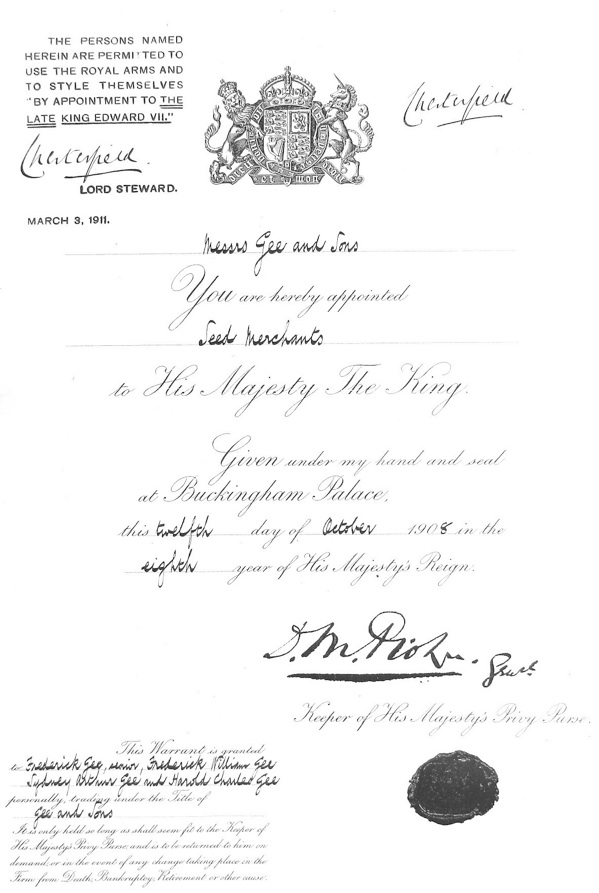 THE PERSONS NAMED
HEREIN ARE PERMITTED TO
USE THE ROYAL ARMS AND
TO STYLE THEMSELVES
"BY APPOINTMENT TO THE
LATE KING EDWARD VII."
Chesterfield.
LORD STEWARD.
MARCH 3, 1911.
Chesterfield.
Messrs Gee and Sons
You are hereby appointed
Seed Merchants
to His Majesty The King.
Given under my hand and seal
at Buckingham Palace,
this twelfth day of October 1908 in the
eighth year of His Majesty's Reign.
D. M. Probyn. Genl.
Keeper of His Majesty's Privy Purse.
This Warrant is granted
to Frederick Gee, senior, Frederick William Gee
Sydney Arthur Gee and Harold Charles Gee
personally, trading under the Title of
Gee and Sons
It is only held so long as shall seem fit to the Keeper of
His Majesty's Privy Purse, and is to be returned to him on
demand, or in the event of any change taking place in the
Firm from Death, Bankruptcy, Retirement or other cause.